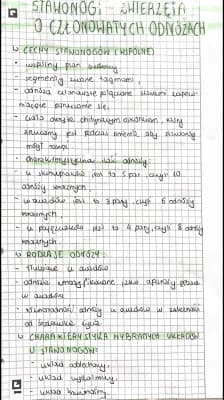 STAWONOGI - ZWIERZĘTA
O CZŁONOWATYCH ODNÓŻACH
CECHY STAWONOGÓW (WSPÓLNE)
- wspólny plan budowy
- segmenty zwane tagmami,
- odnóża członowate połączone stawami zapew-
niające poruszanie się,
- ciało okryte chitynowym oskórkiem, który
zrzucany jest podczas linienia, aby stawonóg
mógł rosnąć.
- charakterystyczna ilość odnóży:
- u skorupiaków jest to 5 par, czyli 10
odnóży krocznych,
- u owadów jest to 3 pary, czyli 6 odnóży
krocznych,
- u pajęczaków jest to 4 pary, czyli 8 odnóży
krocznych.
RODZAJE ODNÓŻY:
- u owadów
- odnóża zmodyfikowane jako aparaty gębowe
u owadów
- różnorodność odnóży u owadów w zależności
od środowiska życia.
CHARAKTERYSTYKA WYBRANYCH UKŁADÓW
U STAWONOGÓW:
- układ oddechowy,
- układ wydalniczy,
- układ